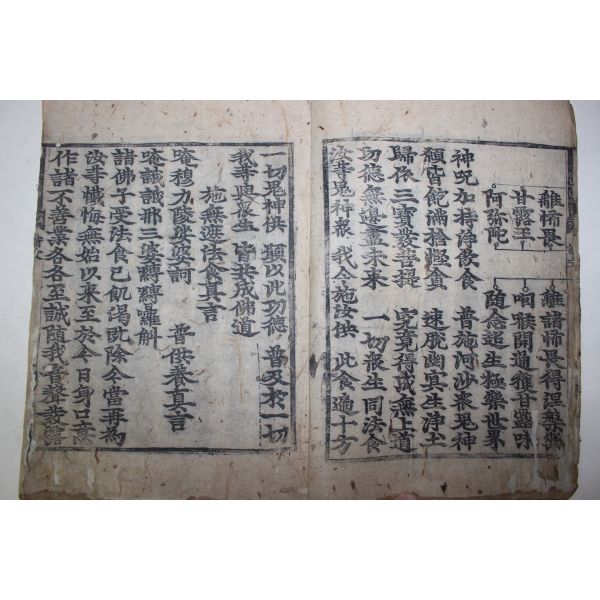 離怖畏 離諸怖畏得涅槃樂
甘露王 咽喉開通獲甘露味
阿弥陀 随念超生極樂世界
神呪加持淨飮食 普施河沙衆鬼神
願皆飽滿捨慳貪 速脫幽冥生淨土
歸依三寶發菩提 究竟得成無上道
功德無邊盡未來 一切衆生同法食
汝等鬼神衆 我今施汝供 此食遍十方
一切鬼神供 願以此功德 普及於一切
我等與衆生 皆共成佛道
施無遮法食真言
唵穆力陵娑婆訶 普供養真言
唵誐誐那三婆縛縛囉斛
諸佛子受法食已飢渴旣除今當再爲
汝等懺悔無始以來至於今日身口意
作諸不善業各各至誠随我音聲發露